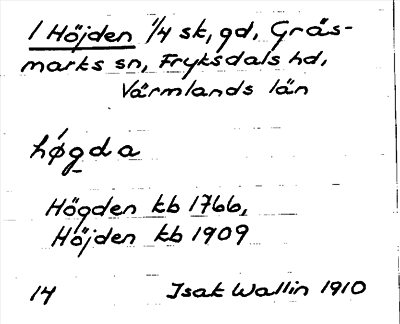 1 Höjden 1/4 sk, gd, Gräs-
marks sn, Fryksdals hd,
Värmlands län
hǿg̱da
Högden kb 1766,
Höjden kb 1909
14 Isak Wallin 1910